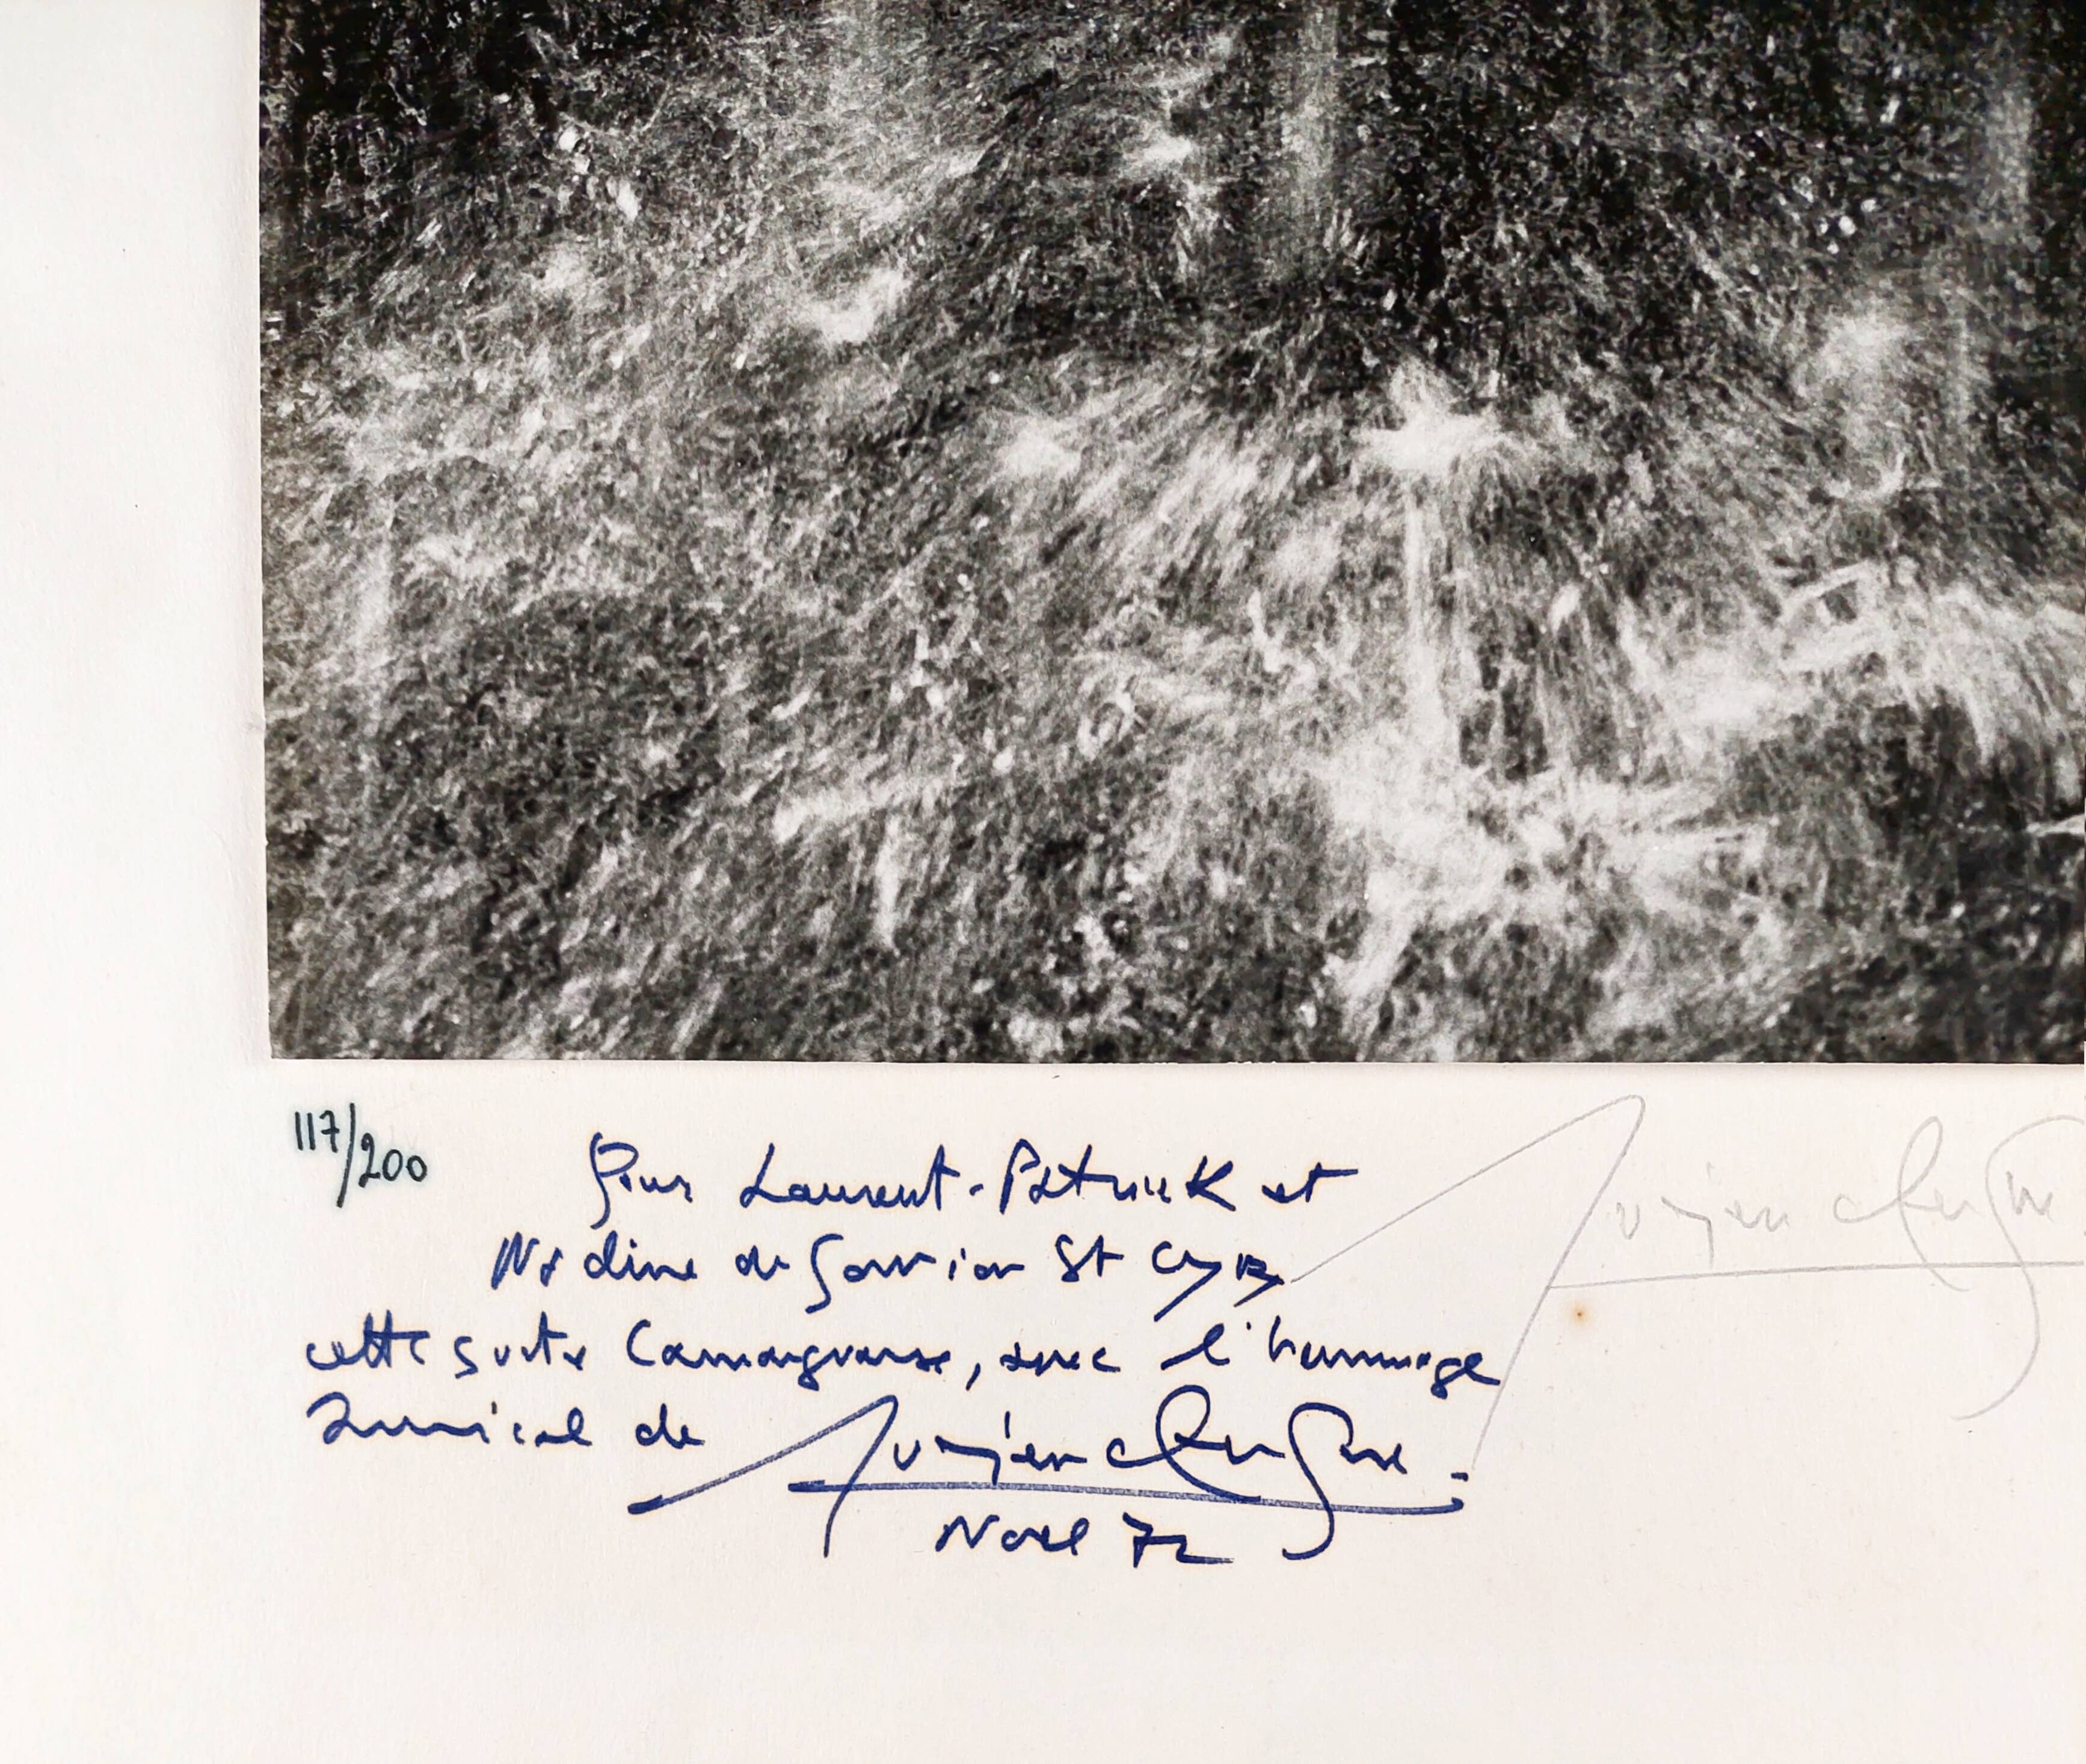 117/200
Pour Laurent-Patrick et
Nadine de Gouvion St Cyr
cette suite Camarguaise, avec l'hommage
amical de Lucien Clergue.
Noel 72
Lucien Clergue